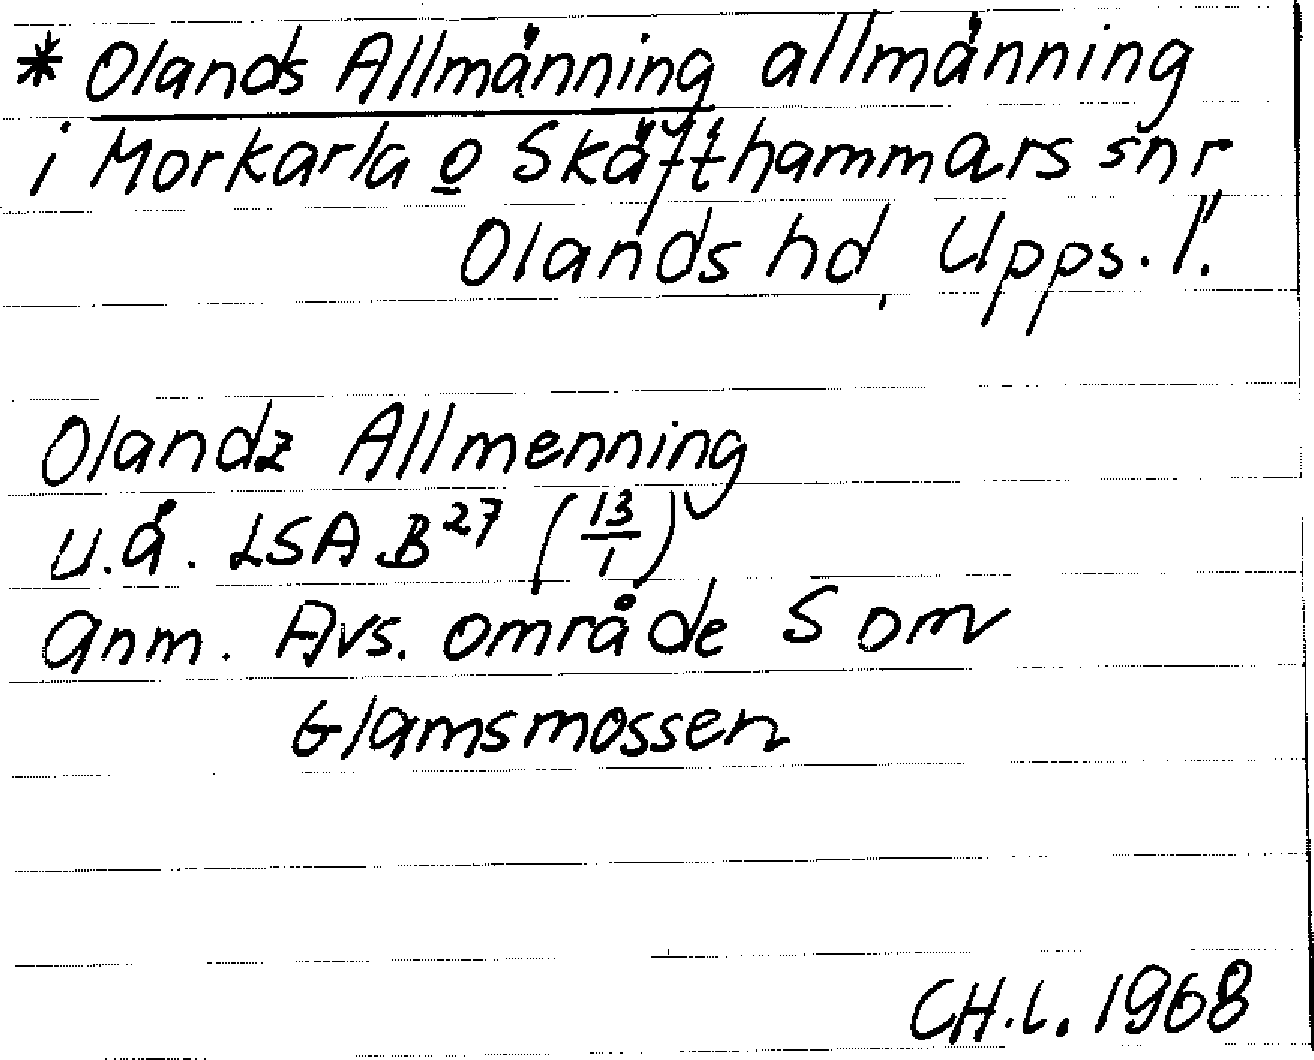 * Olands Allmänning allmänning
i Morkarla o Skäfthammars snr,
Olands hd, Upps. l.
Olandz Allmenning
u.å. LSA B 27 (13/1)
Anm. Avs. område S om
Glamsmossen
CH.L. 1968